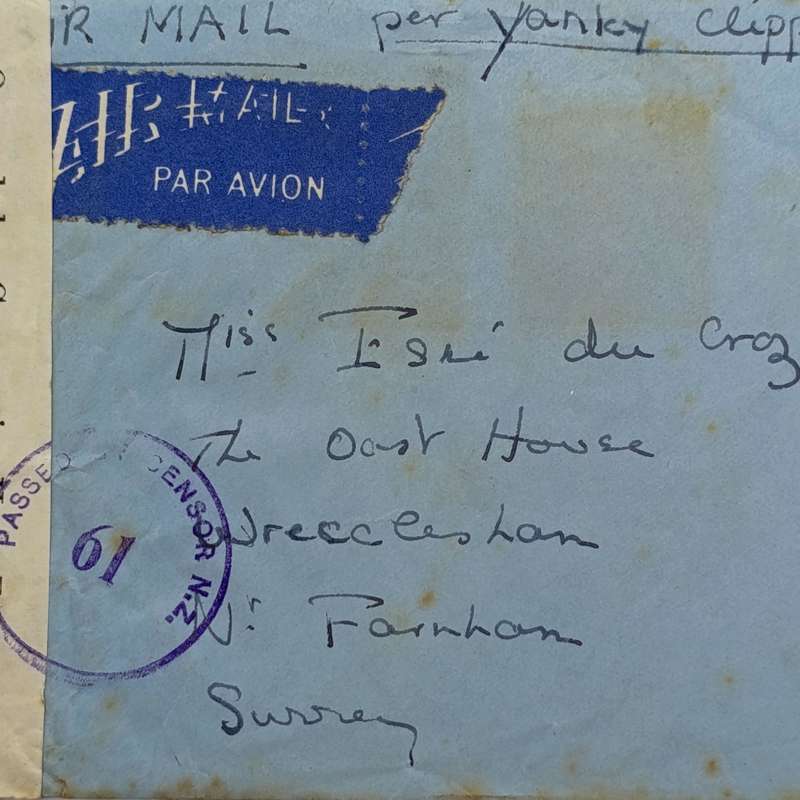 AIR MAIL per Yanky Clipp
AIR MAIL
PAR AVION
Miss Esmé du Croz
The Oast House
Wrecclesham
Nr Farnham
Surrey
PASSED BY CENSOR N.Z.
61